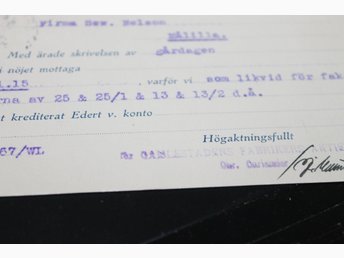 Firma Sew. Nelson
Målilla.
Med ärade skrivelsen av gårdagen
i nöjet mottaga
.15 varför vi som likvid för fak
rna av 25 & 25/1 & 13 & 13/2 d.å.
t krediterat Edert v. konto
Högaktningsfullt
67/WL för GAMLESTADENS FABRIKERS